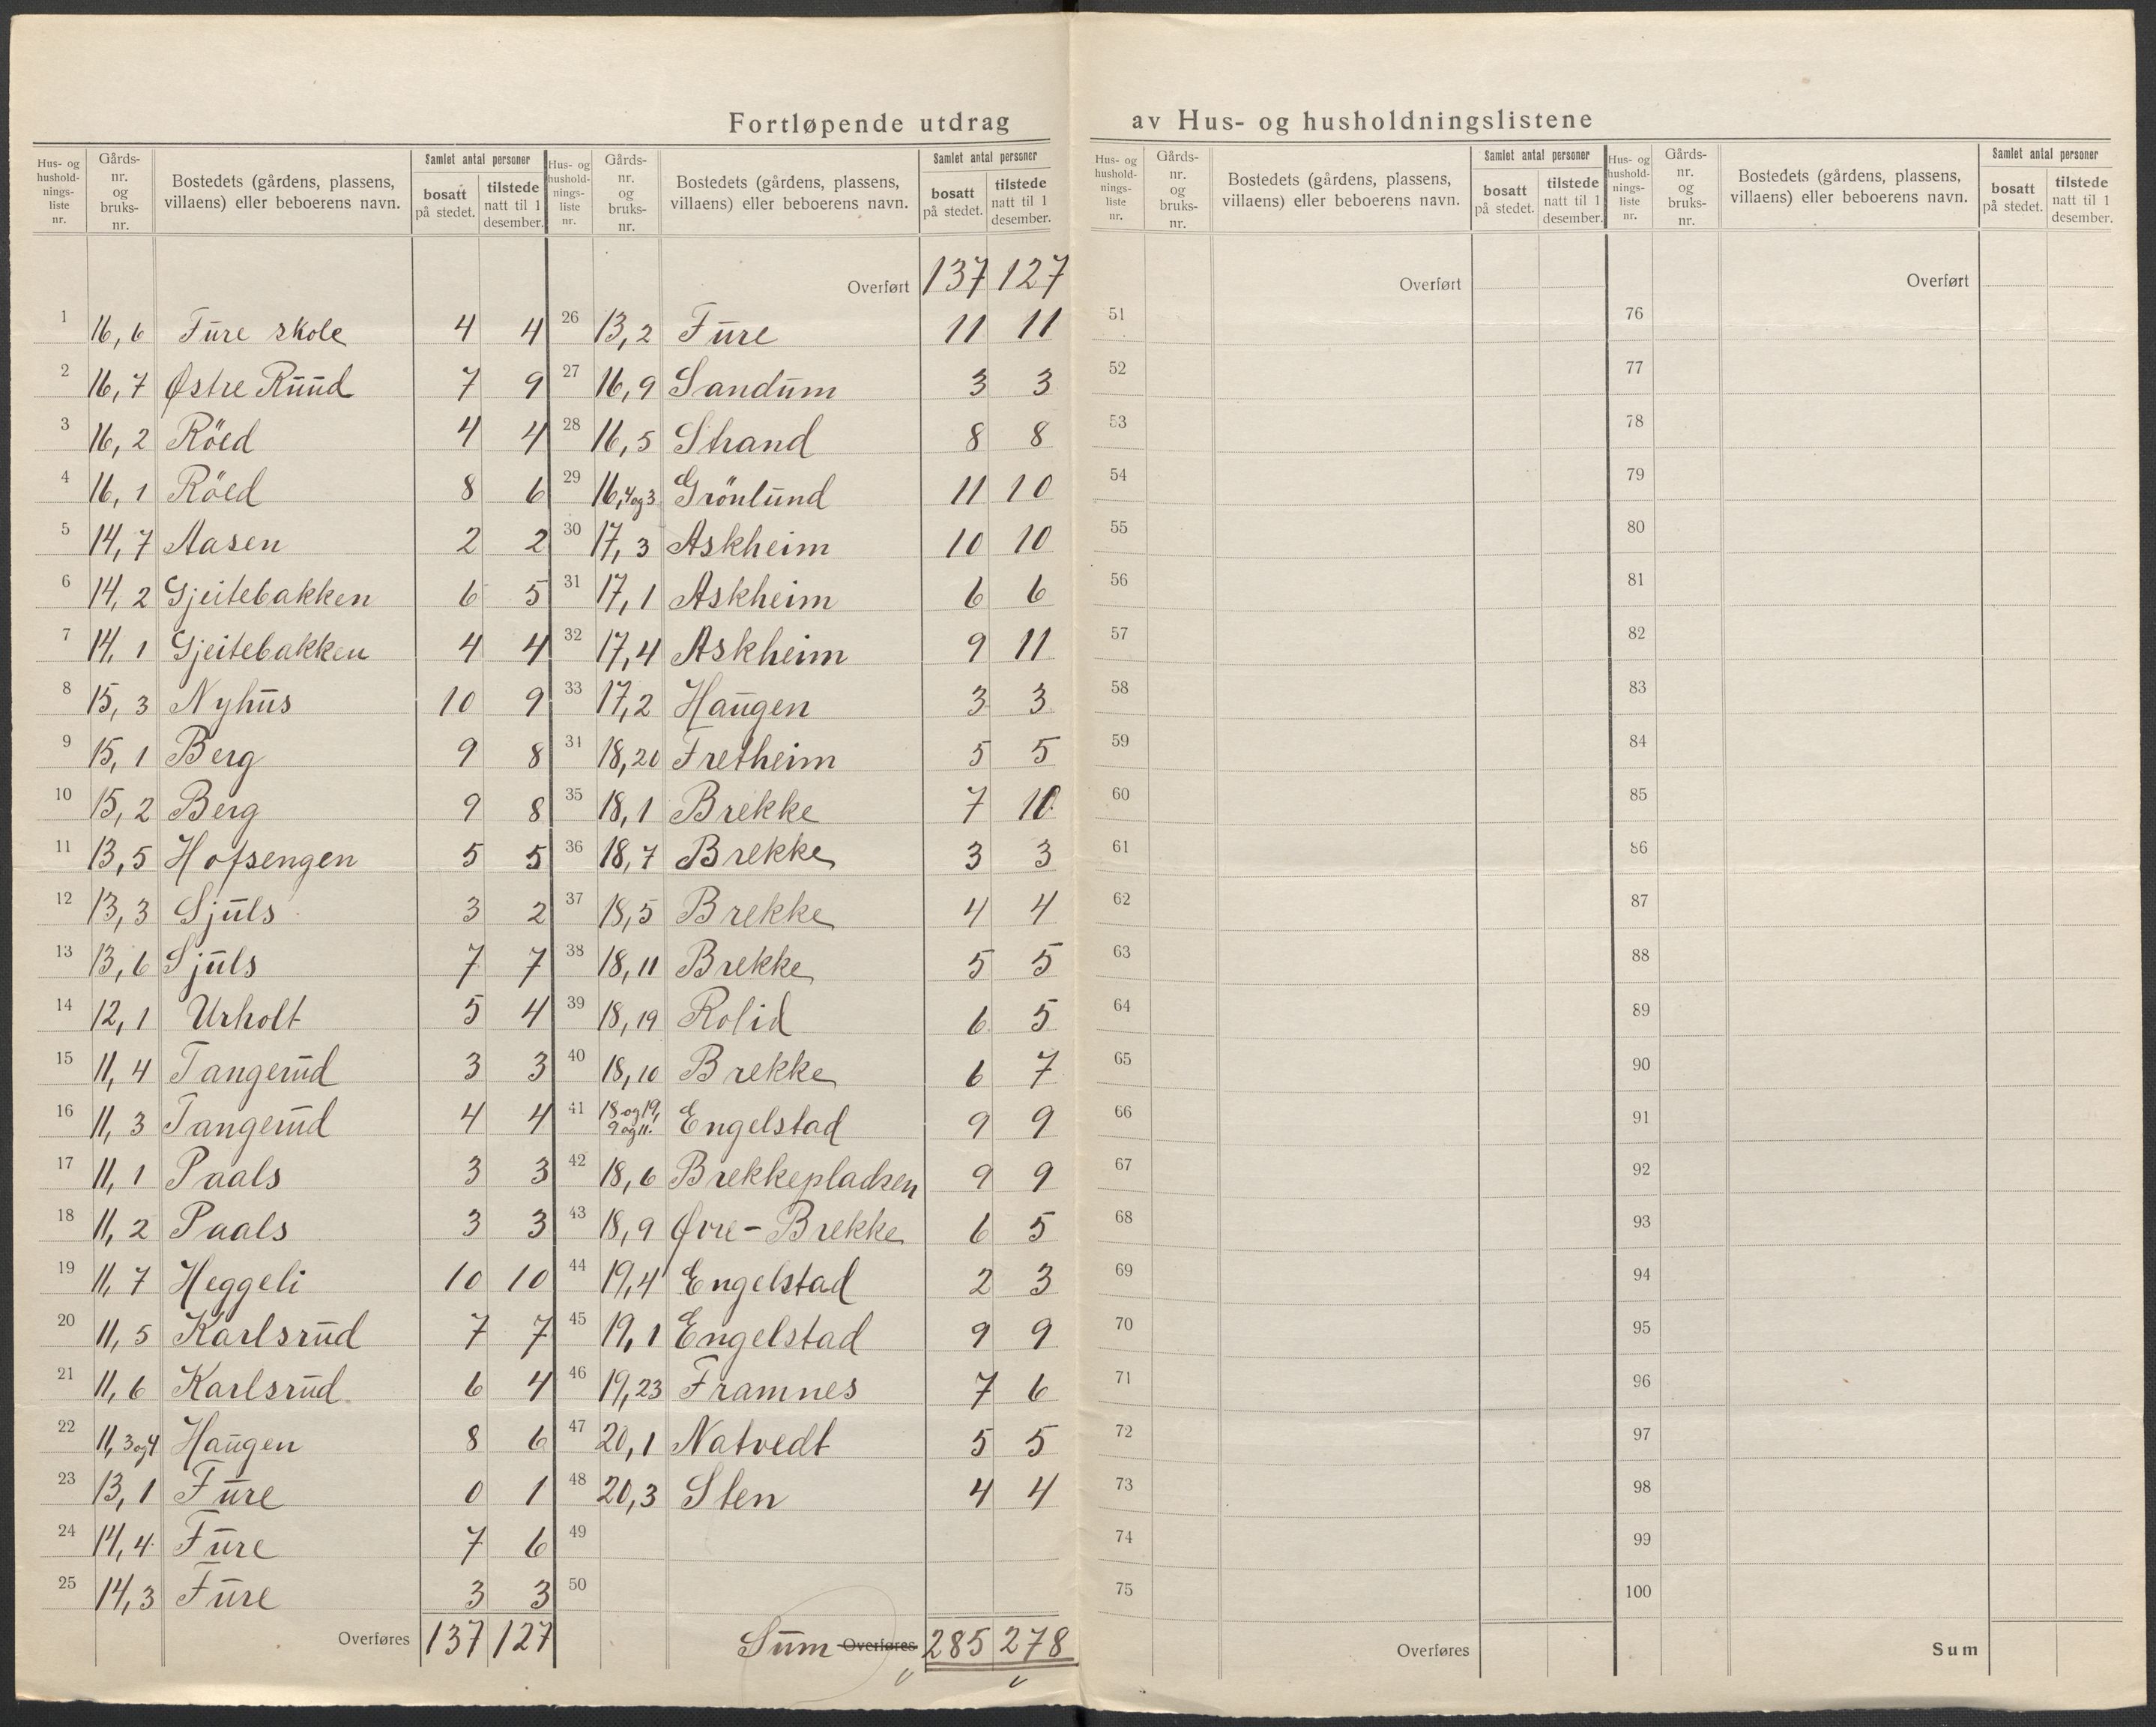 Fortløpende utdrag av Hus- og husholdningslistene
Hus- og hushold- nings- liste nr. | Gårds- nr. og bruks- nr. | Bostedets (gårdens, plassens, villaens) eller beboerens navn. | Samlet antal personer | bosatt på stedet. | tilstede natt til 1 desember.
1 16,6 Fūre skole 4 4
2 16,7 Østre Rūūd 7 9
3 16,2 Röed 4 4
4 16,1 Röed 8 6
5 14,7 Aasen 2 2
6 14,2 Gjeitebakken 6 5
7 14,1 Gjeitebakken 4 4
8 15,3 Nyhūs 10 9
9 15,1 Berg 9 8
10 15,2 Berg 9 8
11 13,5 Hofsengen 5 5
12 13,3 Sjūls 3 2
13 13,6 Sjūls 7 7
14 12,1 Urholt 5 4
15 11,4 Tangerūd 3 3
16 11,3 Tangerūd 4 4
17 11,1 Paals 3 3
18 11,2 Paals 3 3
19 11,7 Heggeli 10 10
20 11,5 Karlsrūd 7 7
21 11,6 Karlsrūd 6 4
22 11,3og4 Haūgen 8 6
23 13,1 Fūre 0 1
24 14,4 Fūre 7 6
25 14,3 Fūre 3 3
Overføres 137 127
Hus- og hushold- nings- liste nr. | Gårds- nr. og bruks- nr. | Bostedets (gårdens, plassens, villaens) eller beboerens navn. | Samlet antal personer | bosatt på stedet. | tilstede natt til 1 desember.
Overført 137 127
26 13,2 Fūre 11 11
27 16,9 Sandūm 3 3
28 16,5 Strand 8 8
29 16,4og3 Grönlūnd 11 10
30 17,3 Askheim 10 10
31 17,1 Askheim 6 6
32 17,4 Askheim 9 11
33 17,2 Haūgen 3 3
31 18,20 Fretheim 5 5
35 18,1 Brekke 7 10
36 18,7 Brekke 3 3
37 18,5 Brekke 4 4
38 18,11 Brekke 5 5
39 18,19 Rolid 6 5
40 18,10 Brekke 6 7
41 18 og 19, 9 og 11. Engelstad 9 9
42 18,6 Brekkepladsen 9 9
43 18,9 Øvre-Brekke 6 5
44 19,4 Engelstad 2 3
45 19,1 Engelstad 9 9
46 19,23 Framnes 7 6
47 20,1 Natvedt 5 5
48 20,3 Sten 4 4
49
50
Sūm Overføres 285 278
Hus- og hushold- nings- liste nr. | Gårds- nr. og bruks- nr. | Bostedets (gårdens, plassens, villaens) eller beboerens navn. | Samlet antal personer | bosatt på stedet. | tilstede natt til 1 desember.
Overført
51
52
53
54
55
56
57
58
59
60
61
62
63
64
65
66
67
68
69
70
71
72
73
74
75
Overføres
Hus- og hushold- nings- liste nr. | Gårds- nr. og bruks- nr. | Bostedets (gårdens, plassens, villaens) eller beboerens navn. | Samlet antal personer | bosatt på stedet. | tilstede natt til 1 desember.
Overført
76
77
78
79
80
81
82
83
84
85
86
87
88
89
90
91
92
93
94
95
96
97
98
99
100
Sum